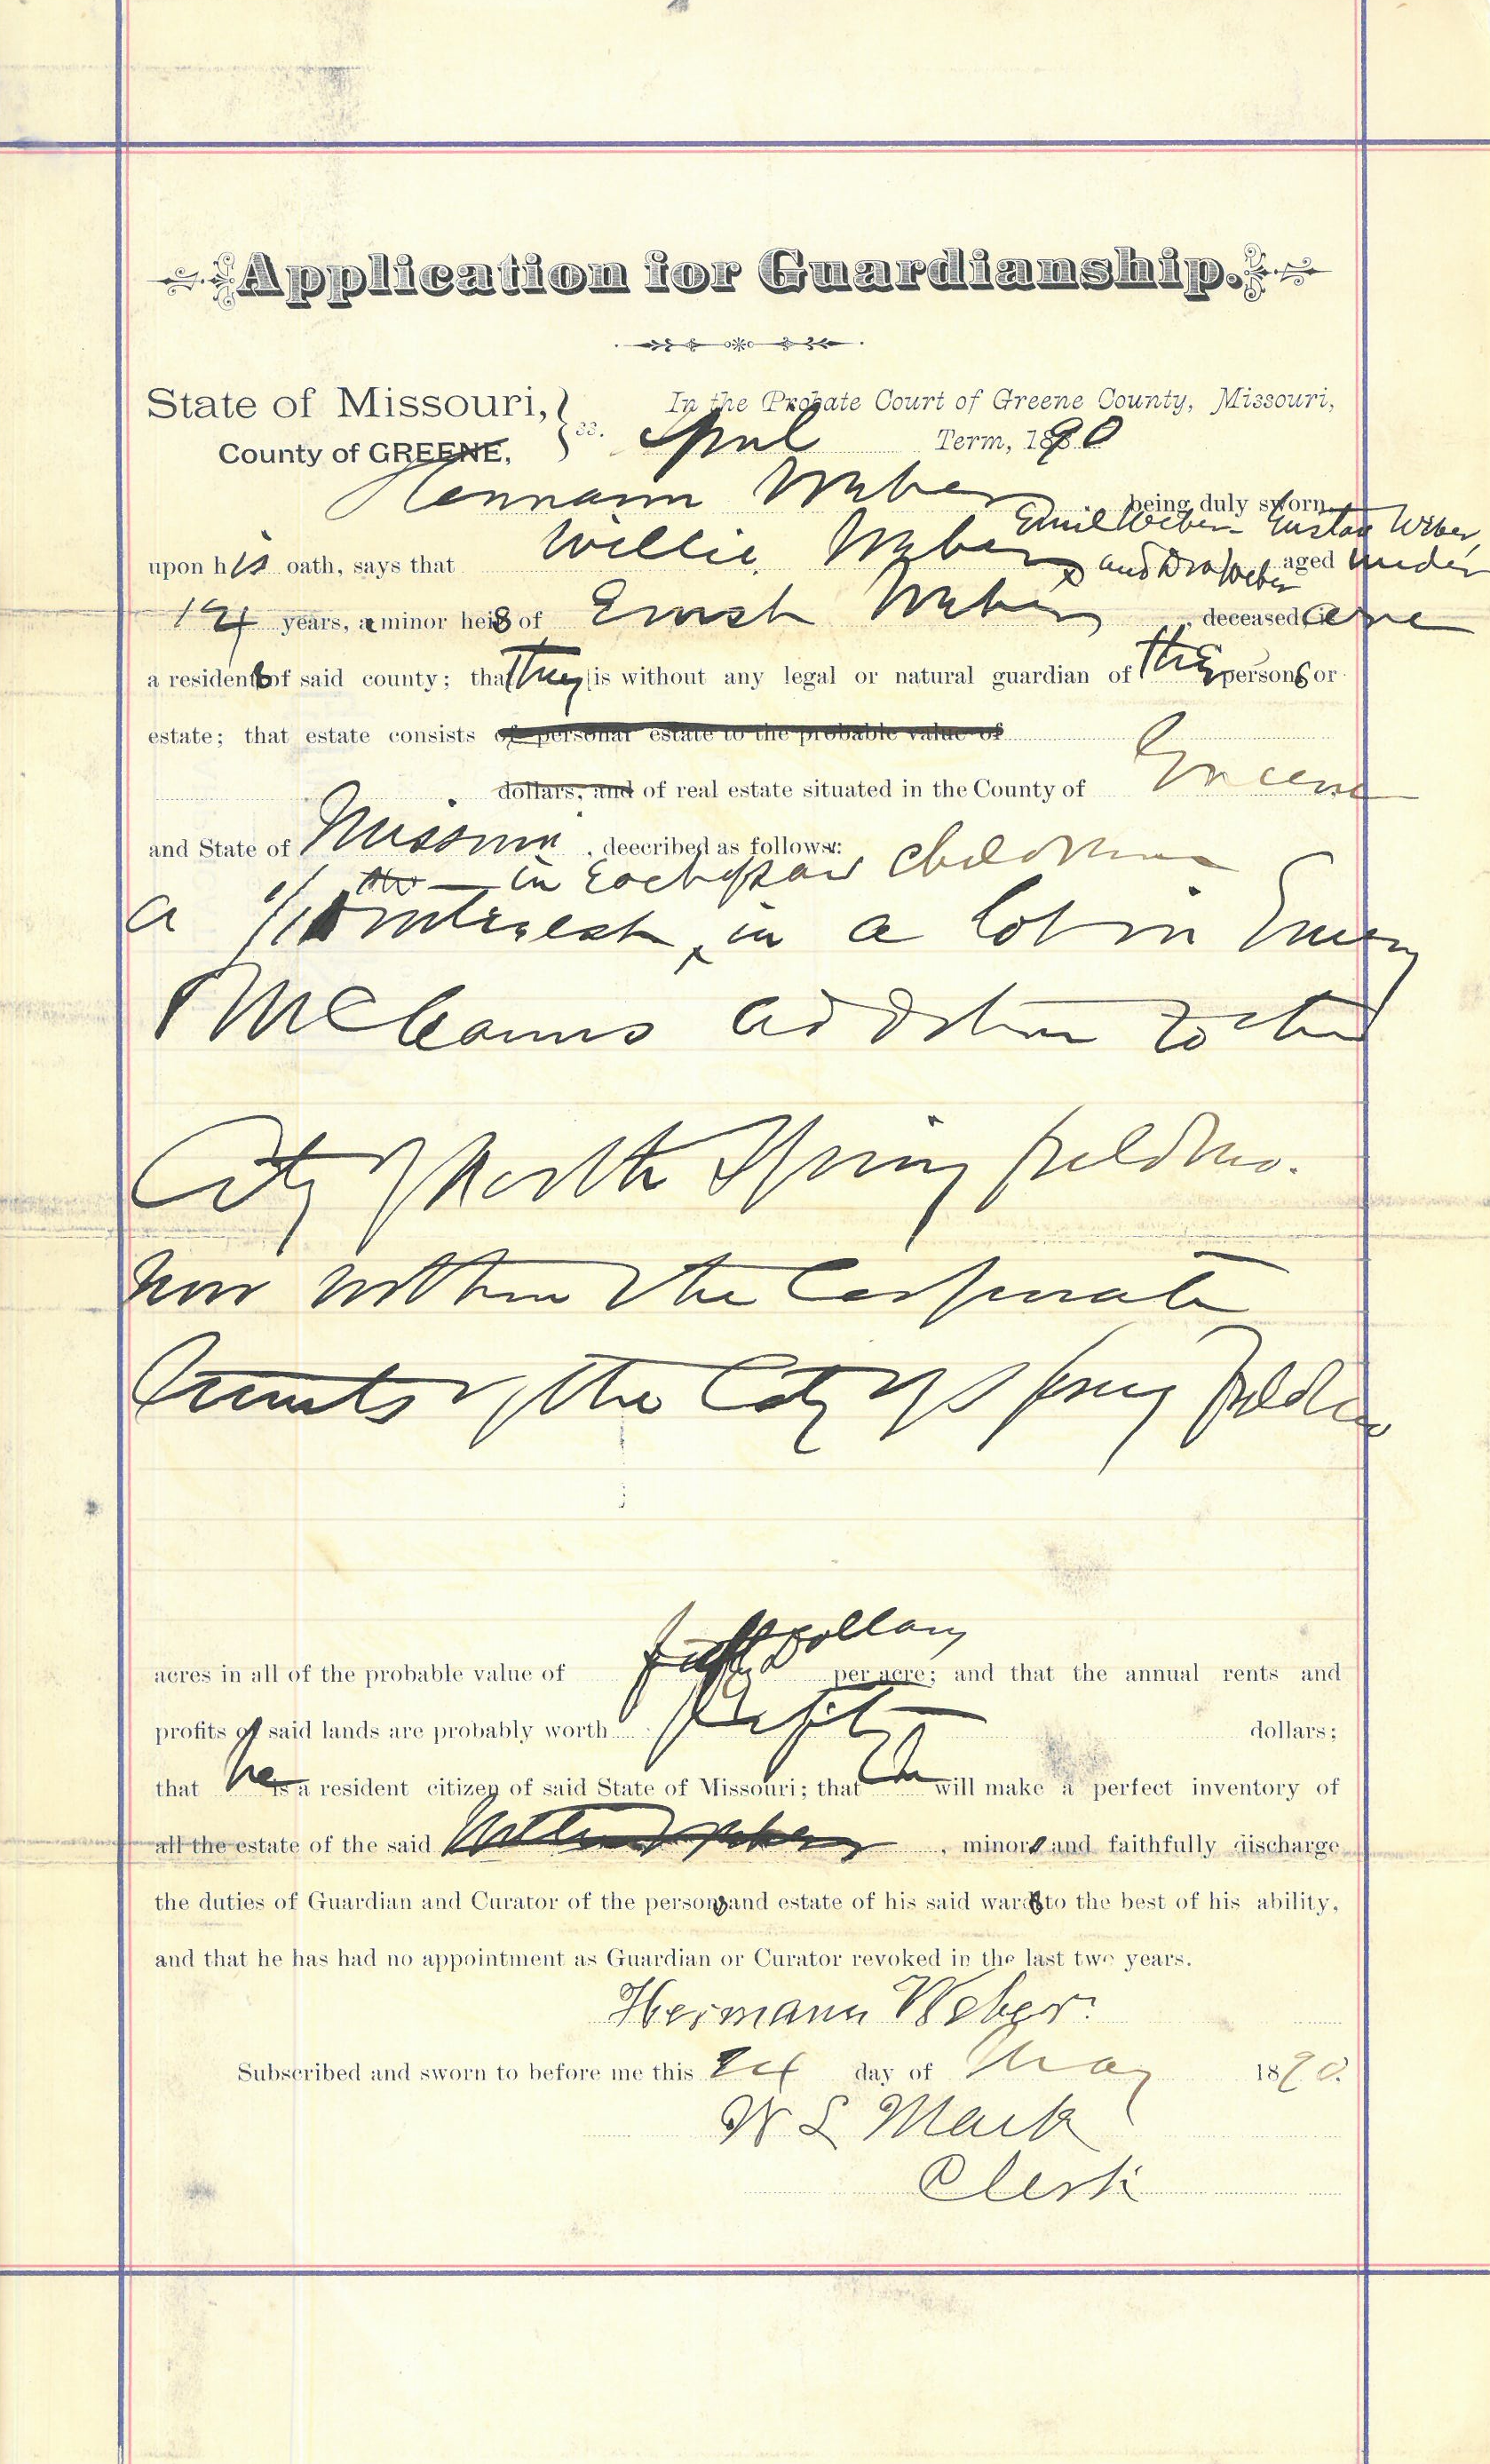 Application for Guardianship.
State of Missouri, In the Probate Court of Greene County, Missouri,
County of GREENE, ss. April Term, 1890
Hermann Weber being duly sworn
Emil Weber Gustav Weber,
upon his oath, says that Willie Weber and Weber aged under
14 years, a minor heirs of Ernst Weber, deceased, is are
a residents of said county; that they is without any legal or natural guardian of their persons or
estate; that estate consists of personal estate to the probable value of
dollars, and of real estate situated in the County of Greene
and State of Missouri, deecribed as follows:
in Each of said children
a interest in a lot in
McCanns addition to the
City of North Springfield Mo.
now within the Corporate
limits of the City of Springfield
acres in all of the probable value of fifty dollars per acre; and that the annual rents and
profits of said lands are probably worth dollars;
that he is a resident citizen of said State of Missouri; that he will make a perfect inventory of
all the estate of the said , minors and faithfully discharge
the duties of Guardian and Curator of the persons and estate of his said wards to the best of his ability,
and that he has had no appointment as Guardian or Curator revoked in the last two years.
Hermann Weber.
Subscribed and sworn to before me this 24 day of May 1890.
W L Mack
Clerk